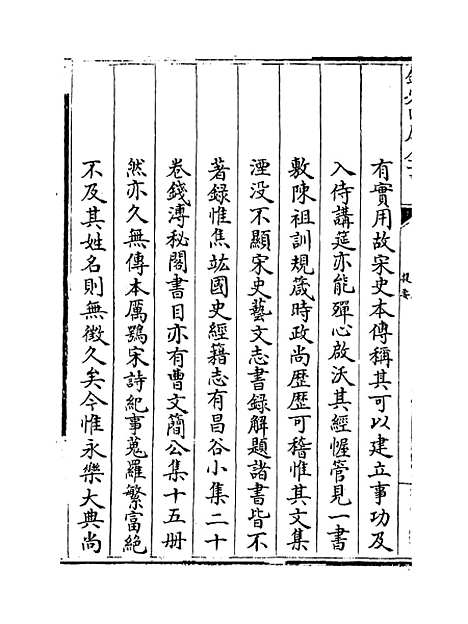 提要
有實用故宋史本傳稱其可以建立事功及
入侍講筵亦能殫心啟沃其經幄管見一書
敷陳祖訓規箴時政尚歴歴可稽惟其文集
湮没不顯宋史藝文志書録解題諸書皆不
著録惟焦竑國史經籍志有昌谷小集二十
卷錢溥秘閣書目亦有曹文簡公集十五册
然亦久無傳本厲鶚宋詩紀事蒐羅繁富絶
不及其姓名則無徵久矣今惟永樂大典尚